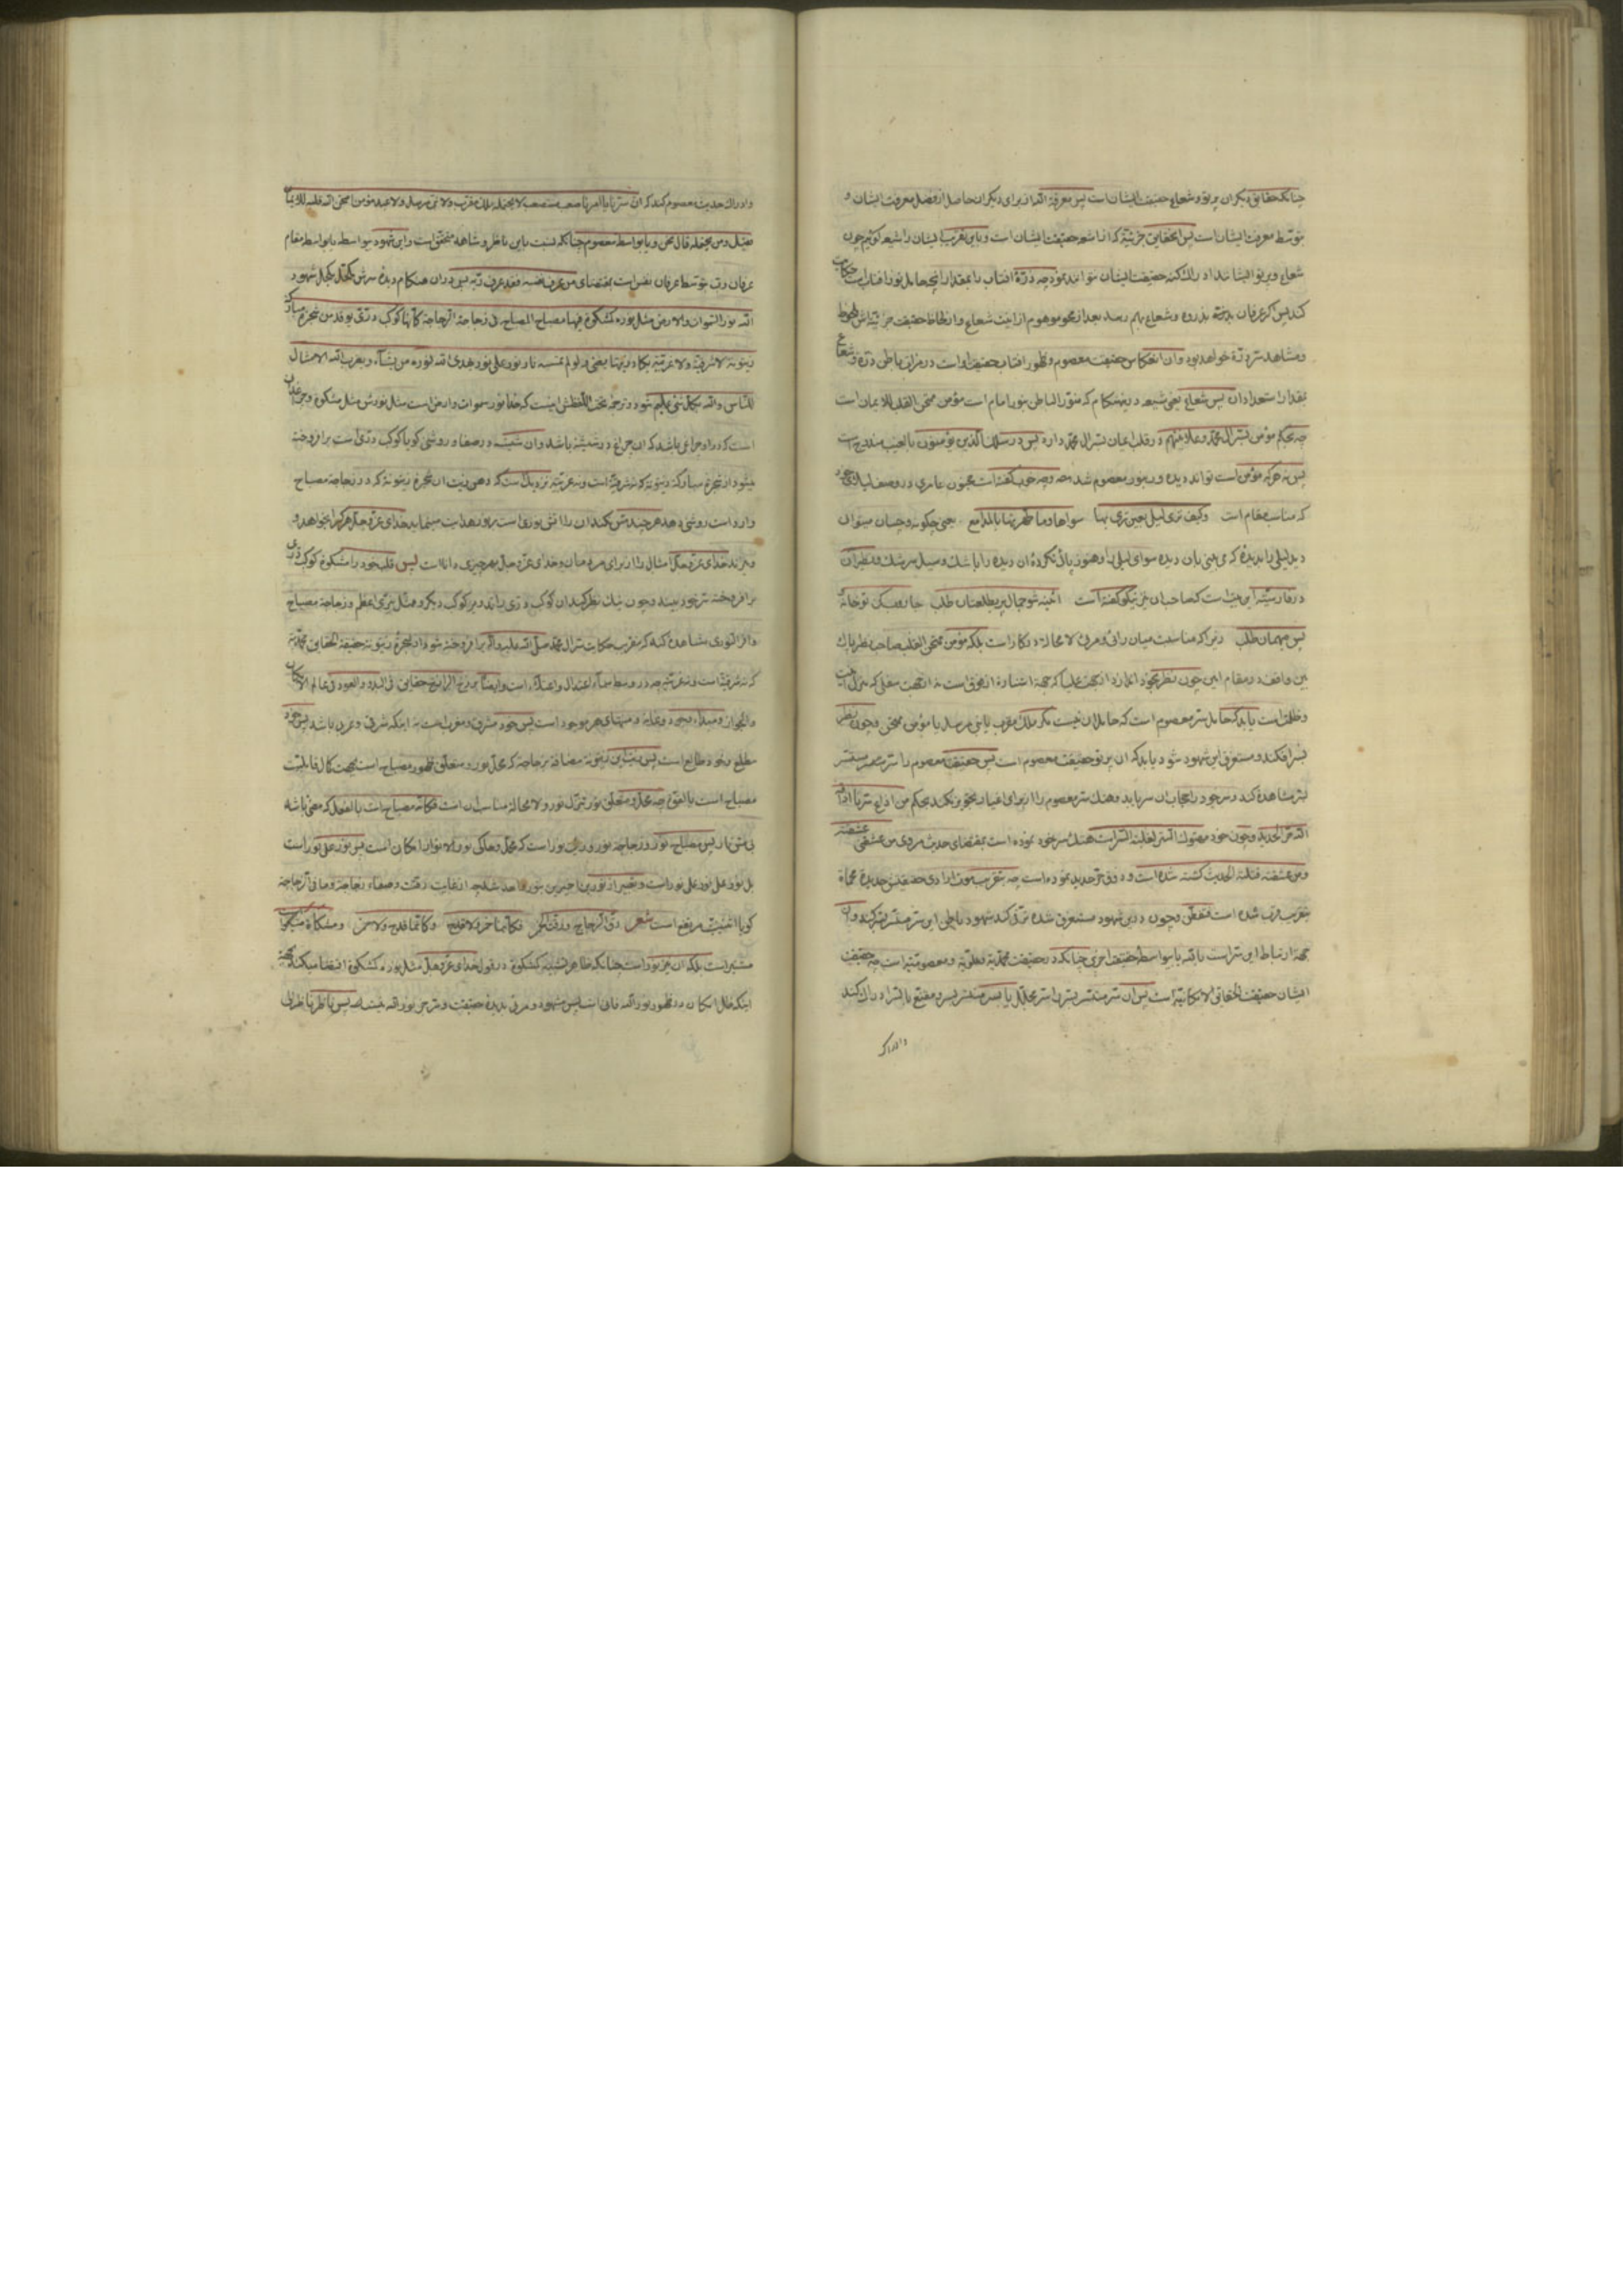 چنانکه حقایق دیگران پرتو و شعاع حقیقت ایشان است پس معرفة الله از برای دیگران حاصل از فضل معرفت ایشان و
بتوسط معرفت ایشان است پس الحقایق جزئیة که از اشعه حقیقت ایشان است و باین تقریب ایشان را شیعه گوئیم چون
شعاع و پرتو ایشانند ادراک کنه حقیقت ایشان نتوانند نمود چه ذرّهٔ آفتاب را بمقدار آنچه حامل نور آفتاب است حکایت
کند پس گر عرفان بدرجهٔ بذروه و شعاع بهم رسد بعد از محو موهوم از انیت شعاع و از لحاظ حقیقت جزئیه‌اش ملحوظ
و مشاهد سرّ ذرّه خواهد بود و آن انعکاس حقیقت معصوم و ظهور آفتاب حقیقت او است در مرآت باطن ذرّه و شعاع
بمقدار استعداد آن پس شعاع یعنی شیعه درینهنگام که منوّر الباطن بنور امام است مؤمن ممتحن القلب للایمان است
چه بحکم مؤمن بسرّ آل محمّد و علانیتهم در قلب ایمان بسرّ آل محمّد دارد پس در سلک الذین یؤمنون بالغیب مندرج است
پس نه هر که مؤمن است تواند دیده ور بنور معصوم شد وه وه چه خوب گفته است مجنون عامری در وصف لیلای خود
که مناسب مقام است وکیف تری لیلی بعین تری بها سواها وما طهرتها بالمدامع یعنی چگونه و چسان میتوان
دید لیلی را بدیدهٔ که می بینی بآن دیده سوای لیلی را و هنوز پاک نکردهٔ آن دیده را باشک و سیل سرشک و نظیر آن
در فارسیّه این بیت است که صاحبان نیز نیکو گفته است آئینه شو جمال پری طلعتان طلب جاروب کن تو خانه
پس میهمان طلب زیرا که مناسبت میان رائی و مرئی لا محاله در کار است بلکه مؤمن ممتحن القلب صاحب نظر پاک
بین واقف در مقام این چون نظر بخود اندازد از جهت علیا که جهة اشاره از فوق است نه از جهت سفلی که منزل انیّت
و ظلمت است یابد که حامل سرّ معصوم است که حامل آن نیست مگر ملک مقرب یا نبی مرسل یا مؤمن ممتحن و چون نظر
بسرّ افکند و مستغرق این شهود شود یابد که آن پرتو حقیقت معصوم است پس حقیقت معصوم را سرّ مستسر
بسرّ مشاهده کند و سر خود را حجاب آن سر یابد و هتک ستر معصوم را از برای اغیار تجویز نکند بحکم من اذاع سرّنا اذاقه
الله حرّ الحدید و چون خود مهتوک الستر لغلبة السّر است هتک سر خود نموده است بمقتضای حدیث مروی من عشقنی عشقته
ومن عشقته قتلته الحدیث کشته شده است و ذوق حرّ حدید نموده است چه بتقریب موت ارادی
بتقریب قرب شده است فتفطن و چون درین شهود مستغرق شده ترقی کند شهود باطن این سر مستسر بسر کند و آن
جهة ارتباط این سرّ است بالله یا بواسطه حقیقت اخری چنانکه در حقیقت محمّدیه و علویّه و معصومیّه است چه حقیقت
ایشان حقیقت الحقایق الامکانیّه است پس آن سر مستسر بسر را سر مجلّل یا بسر مستسر بسر و مقنّع بالسّر ادراک کند
وادراک
وادراک حدیث معصوم کند که ان سرّنا یا امرنا صعب مستصعب لا یحتمله ملک مقرب ولا نبی مرسل ولا عبد مؤمن امتحن الله قلبه للایمان
فقیل ومن یحتمله قال نحن و یا بواسطه معصوم چنانکه نسبت باین ناظر و شاهد متحقق است و این شهود بواسطه یا بواسطه مقام
عرفان رب بتوسط عرفان نفس است بمقتضای من عرف نفسه فقد عرف ربّه پس در آن هنگام دیدهٔ سرش مکتحل بکحل شهود
الله نور السّموات والارض مثل نوره کمشکوة فیها مصباح المصباح فی زجاجة الزّجاجة کأنّها کوکب درّیّ یوقد من شجرة مبارکة
زیتونة لا شرقیّة ولا غربیّة یکاد زیتها یضیء ولو لم تمسسه نار نور علی نور یهدی الله لنوره من یشآء ویضرب الله الامثال
للنّاس والله بکلّ شیء علیم شود و ترجمه تحت اللفظش اینست که خدا نور سموات و ارض است مثل نورش مثل مشکوة و چراغدان
است که در او چراغی باشد که آن چراغ در شیشه باشد و آن شیشه در صفا و روشنی گویا کوکب درّی است برافروخته
میشود از شجرهٔ مبارکه زیتونه که نه شرقیّه است و نه غربیّه نزدیک است که دهن زیت آن شجره زیتونه که در زجاجة مصباح
وارد است روشنی دهد هر چند مس نکند آن را آتش نوری است بر نور هدایت مینماید خدای عزّ و جلّ هر که را بخواهد و
میزند خدای عزّ و جلّ امثال را از برای مردمان و خدای عزّ و جلّ بهر چیزی دانا است پس قلب خود را مشکوة کوکب درّی
برافروخته سر خود بیند و چون نیک نظر کند آن کوکب درّی را نه درّی کوکب دیگر و مثل نیّر اعظم و زجاجة مصباح
وافر النوری مشاهده کند که بتقریب حکایت سرّ آل محمّد صلّی الله علیه وآله برافروخته شود از شجرهٔ زیتونه حقیقة الحقایق محمّدیّه
که نه شرقیّه است و نه غربیّه چه در وسط سماء اعتدال و اعتلاء است و ایضا برزخ البرازخ حقایق فی البدء والعود فی عالم الامکان
والجواز و مبداء وجود و غایه و منتهای هر موجود است پس خود مشرق و مغرب است نه اینکه شرقی و غربی باشد پس خود
مطلع و خود طالع است پس زیت این زیتونه مضافة بزجاجه که محلّ نور و متعلّق ظهور مصباح است بجهت کمال قابلیّت
مصباح است بالقوّه چه محلّ و متعلّق نور تنزّل نور و لا محاله مناسب آن است فکأنّه مصباح است بالفعل که مضیء باشد
بی مسّ نار پس مصباح نور و زجاجة نور و زیت نور است که محلّ و محکی نور و الانوار امکان است پس نور علی نور است
بل نور علی نور علی نور است و تعبیر از نورین اخیرین بنور واحد شد چه از غایت رقّت و صفاء زجاجة و ما فی الزّجاجة
گویا اثنینیّت مرتفع است شعر رقّ الزّجاج ورقّت الخمر فکأنّما خمر ولا قدح وکأنّما قدح ولا خمر و مشکاة
مستنیر است بلکه آن نیز نور است چنانکه ظاهر تشبیه کمشکوة در قول خدای عزّ و جلّ مثل نوره کمشکوة اقتضا میکند بجهة
اینکه ظلّ امکان در ظهور نور الله فانی است پس مشهود و مرئی بدیدهٔ حقیقت و سرّ جز نور الله نیست پس ناظر بنا ظرلی